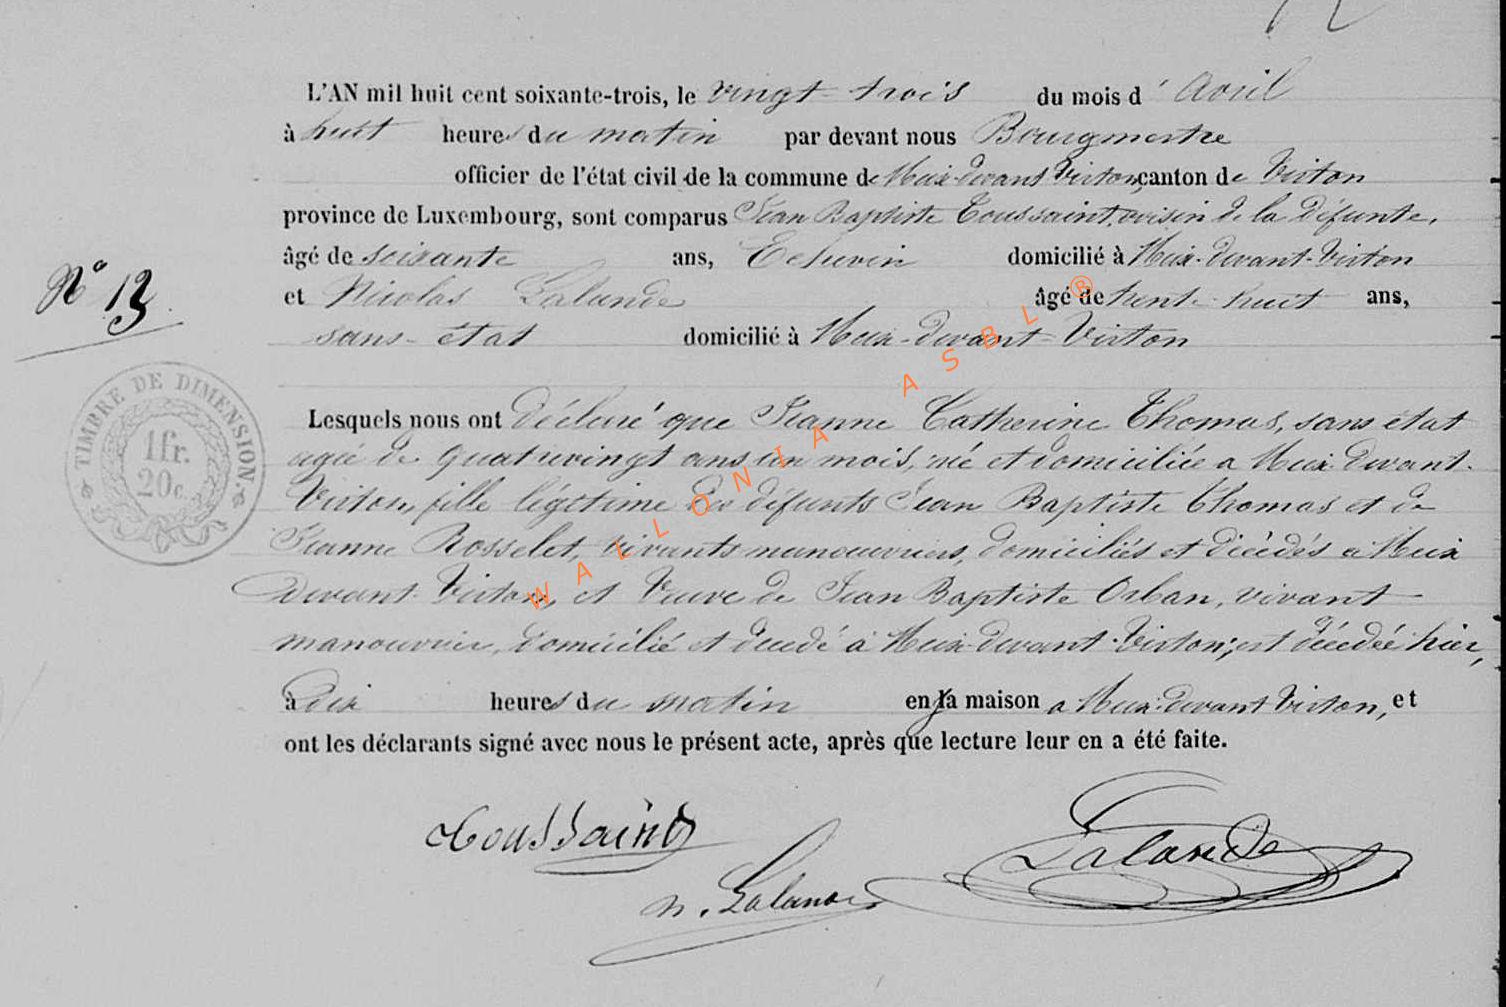 L'AN mil huit cent soixante-trois, le vingt-trois du mois d'Avril
à huit heures du matin par devant nous Bourgmestre
officier de l'état civil de la commune de Meix-devant Virton, canton de Virton
province de Luxembourg, sont comparus Jean Baptiste Toussaint, voisin de la défunte,
âgé de soixante ans, Echevin domicilié à Meix-devant-Virton
et Nicolas Lalande âgé de trente-huit ans,
N° 13
sans-état domicilié à Meix-devant-Virton
TIMBRE DE DIMENSION.
1fr.
20c.
Lesquels nous ont déclaré que Jeanne Catherine Thomas, sans état
agée de quatrevingt ans un mois, née et domiciliée a Meix-devant-
Virton, fille légitime des défunts Jean Baptiste Thomas et de
Jeanne Rosselet, vivants manouvriers, domiciliés et décédés a Meix
devant-Virton, et Veuve de Jean Baptiste Orban, vivant
manouvrier, domicilié et décedé à Meix-devant-Virton, est décedée hier,
à dix heures du matin en sa maison a Meix-devant Virton, et
ont les déclarants signé avec nous le présent acte, après que lecture leur en a été faite.
Toussaint
Lalande
n. Lalande
WALLONIA ASBL ®